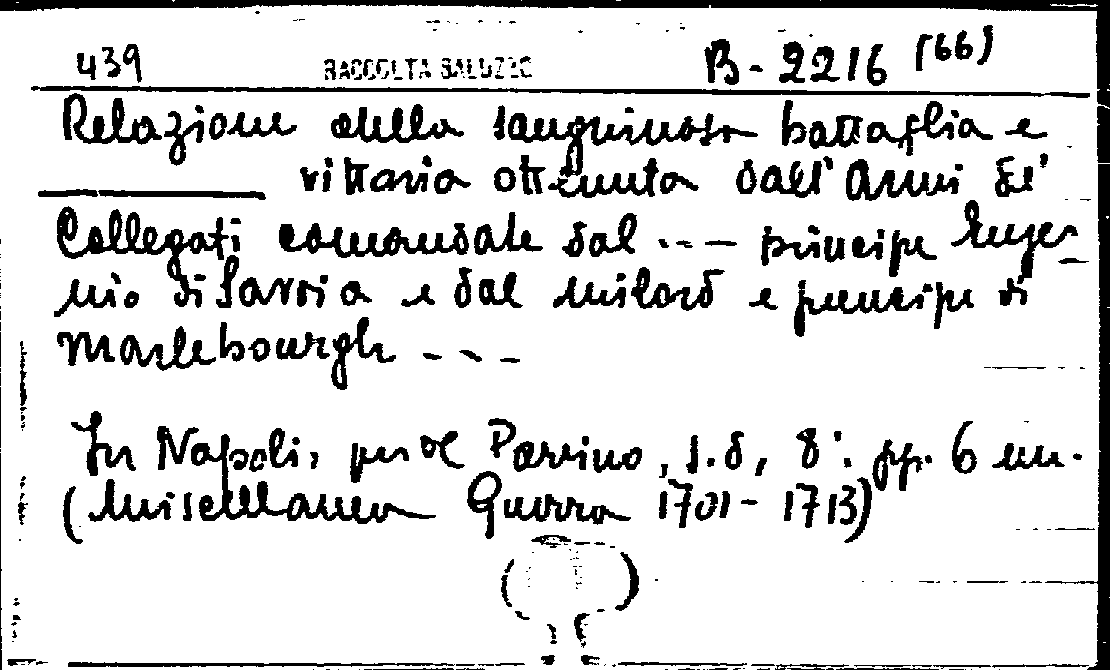 439 RACCOLTA BALUZZO B-2216 (66)
Relazione della sanguinosa battaglia e
vittoria ottenuta dall' Armi de'
Collegati comandate dal --- principe Euge-
nio di Savoia e dal milord e principe di
Marlebourgh ---
In Napoli, per il Parrino, s.d, 8°. pp. 6 nn.
(Miscellanea Guerra 1701-1713)